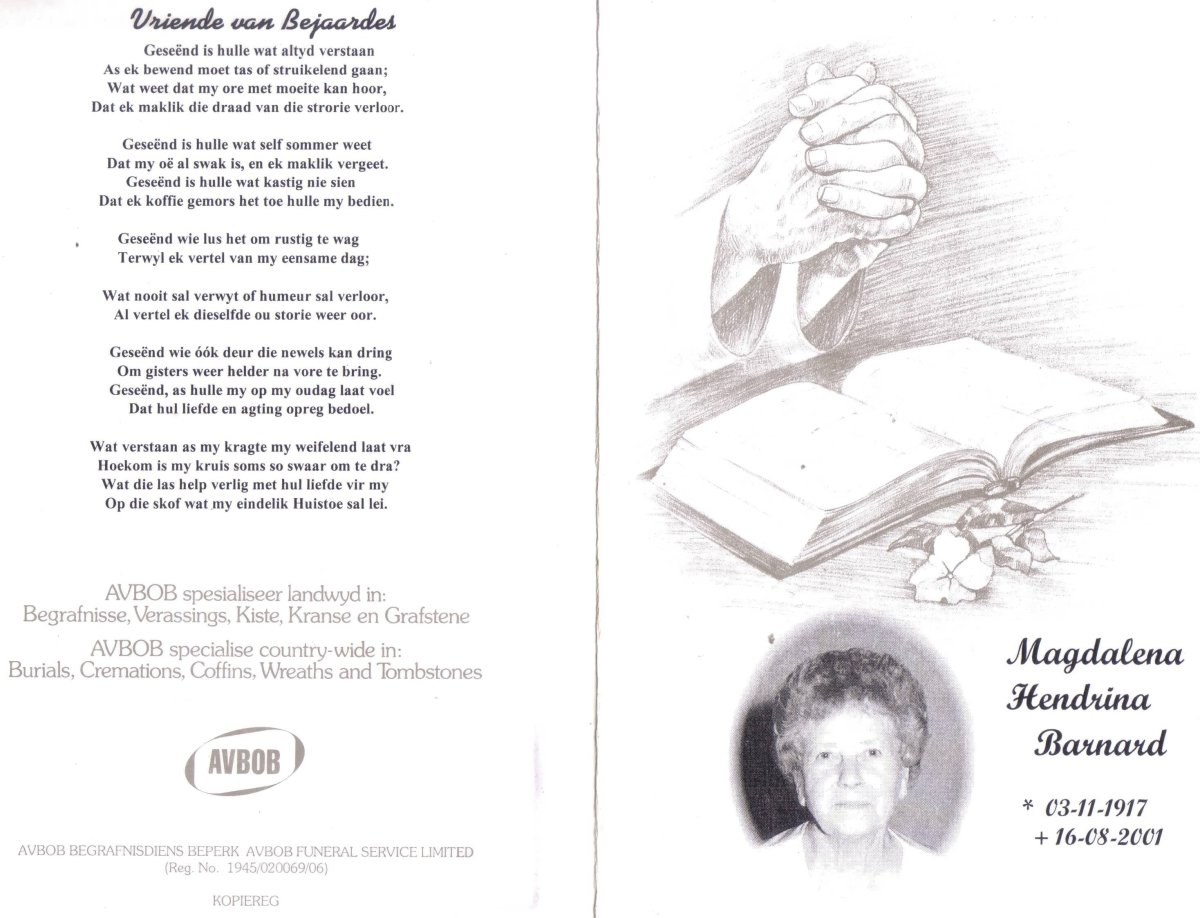 Vriende van Bejaardes
Geseënd is hulle wat altyd verstaan
As ek bewend moet tas of struikelend gaan;
Wat weet dat my ore met moeite kan hoor,
Dat ek maklik die draad van die strorie verloor.
Geseënd is hulle wat self sommer weet
Dat my oë al swak is, en ek maklik vergeet.
Geseënd is hulle wat kastig nie sien
Dat ek koffie gemors het toe hulle my bedien.
Geseënd wie lus het om rustig te wag
Terwyl ek vertel van my eensame dag;
Wat nooit sal verwyt of humeur sal verloor,
Al vertel ek dieselfde ou storie weer oor.
Geseënd wie óók deur die newels kan dring
Om gisters weer helder na vore te bring.
Geseënd, as hulle my op my oudag laat voel
Dat hul liefde en agting opreg bedoel.
Wat verstaan as my kragte my weifelend laat vra
Hoekom is my kruis soms so swaar om te dra?
Wat die las help verlig met hul liefde vir my
Op die skof wat my eindelik Huistoe sal lei.
AVBOB spesialiseer landwyd in:
Begrafnisse, Verassings, Kiste, Kranse en Grafstene
AVBOB specialise country-wide in:
Burials, Cremations, Coffins, Wreaths and Tombstones
AVBOB
AVBOB BEGRAFNISDIENS BEPERK AVBOB FUNERAL SERVICE LIMITED
(Reg. No. 1945/020069/06)
KOPIEREG
Magdalena
Hendrina
Barnard
* 03-11-1917
+ 16-08-2001